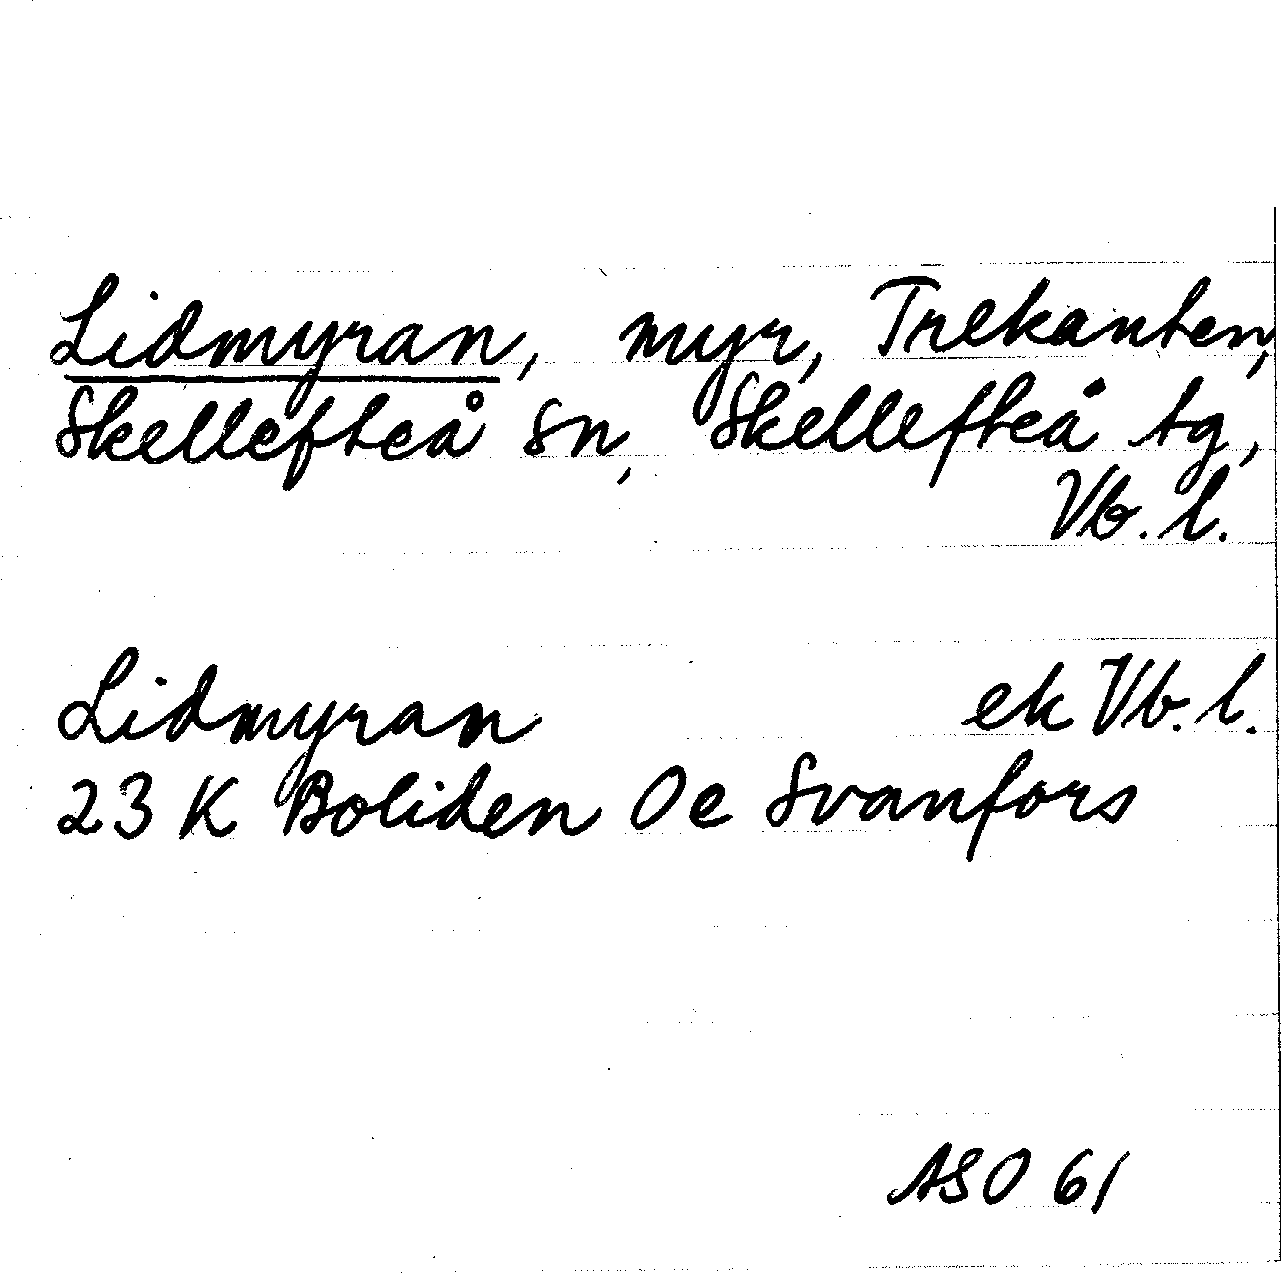 Lidmyran, myr, Trekanten,
Skellefteå sn, Skellefteå tg,
Vb. l.
Lidmyran ek Vb. l.
23 K Boliden Oe Svanfors
ASO 61